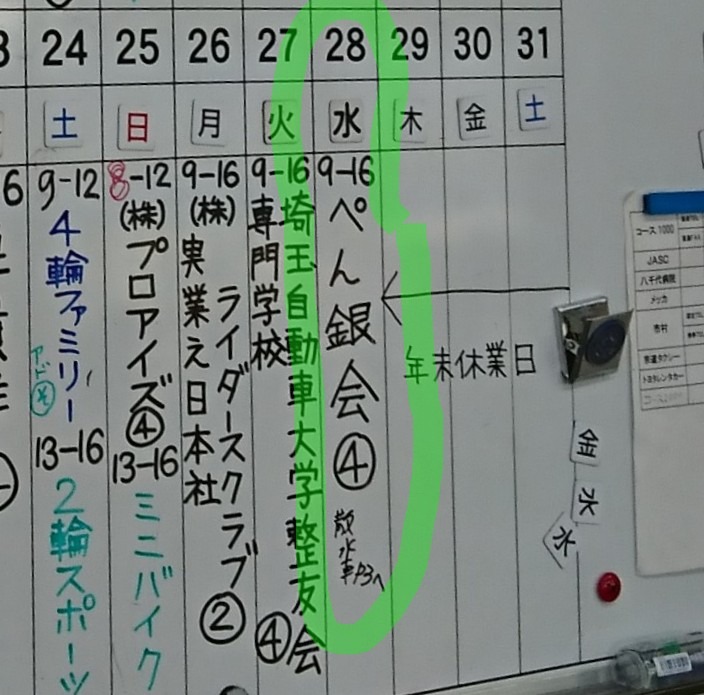 24 25 26 27 28 29 30 31
土 日 月 火 水 木 金 土
9-12
4輪ファミリー
13-16
2輪スポーツ
8-12
(株)プロアイズ④
13-16
ミニバイク
9-16
(株)実業之日本社
ライダースクラブ②
9-16
埼玉自動車大学整友会
専門学校
④
9-16
ぺん銀会④
年末休業日
コース1000
JASC
八千代病院
メッカ
市村
トヨタレンタカー
金
水
水